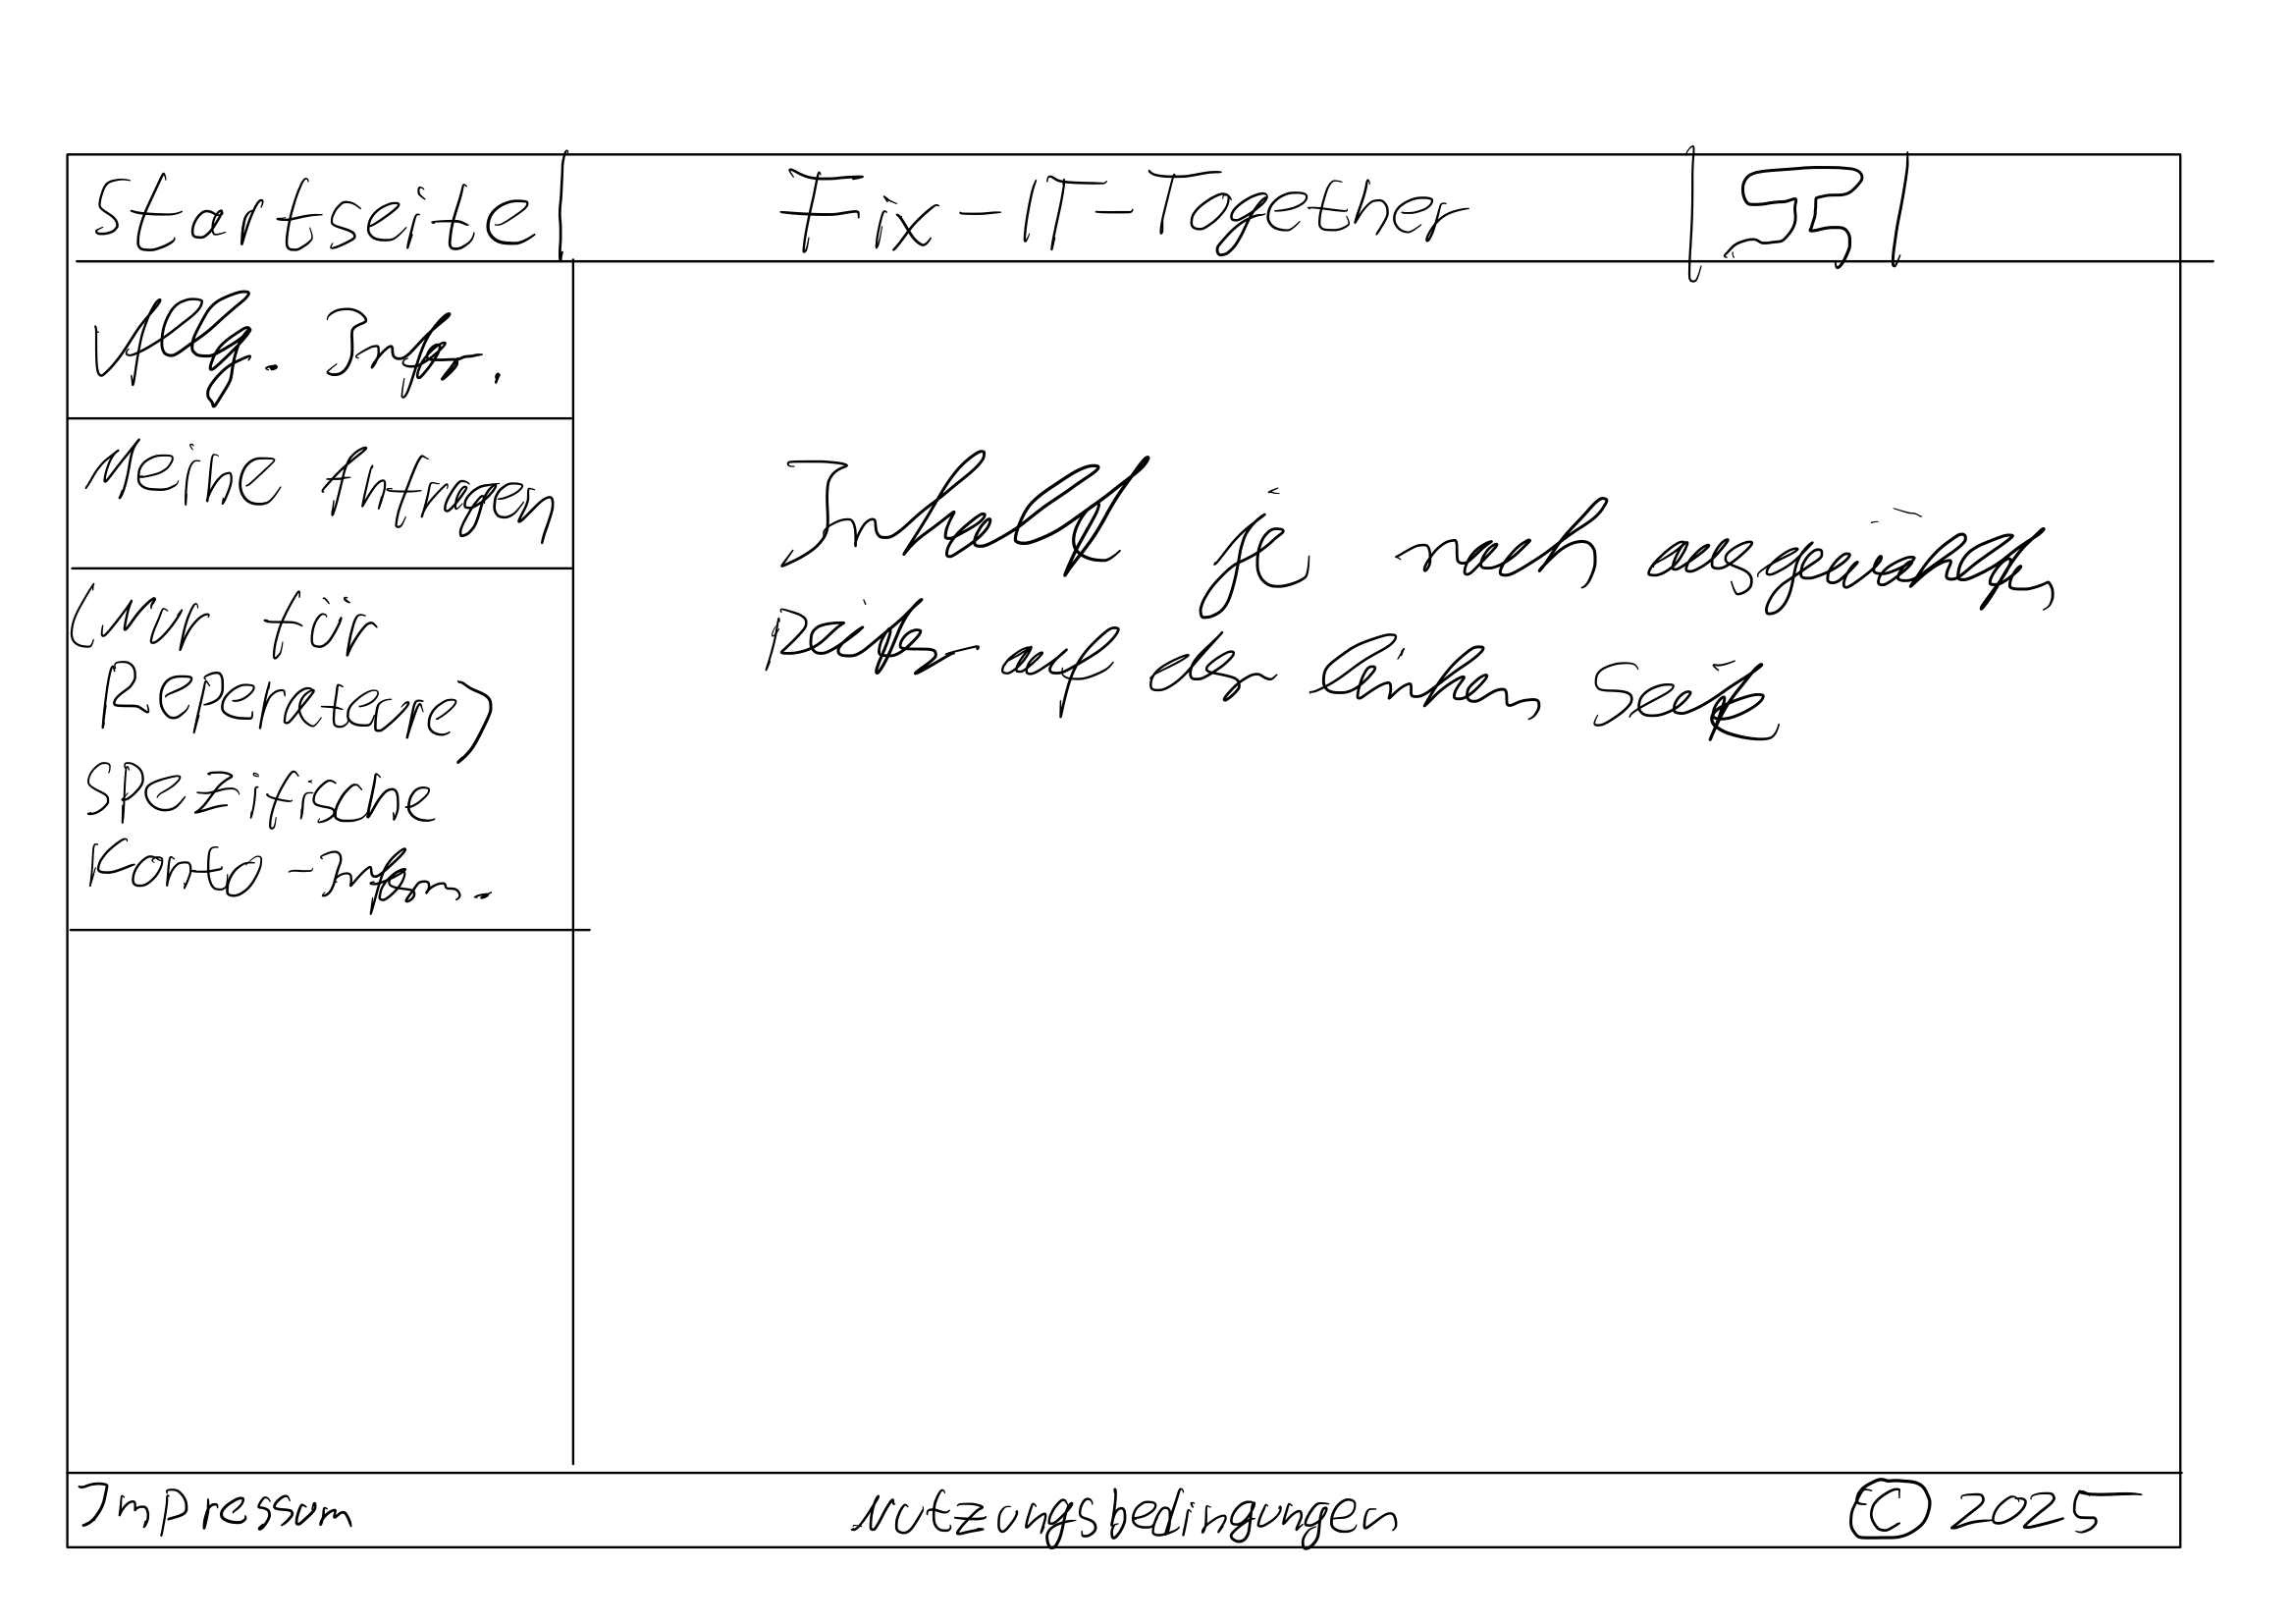 Startseite
Fix-IT-Together
Allg. Infor.
Meine Anfragen
(nur für
Reperateure)
spezifische
Konto-Inform.
Inhalt je nach ausgewählten
Reiter auf der linken Seite
Impressum
Nutzungsbedingungen
© 2025